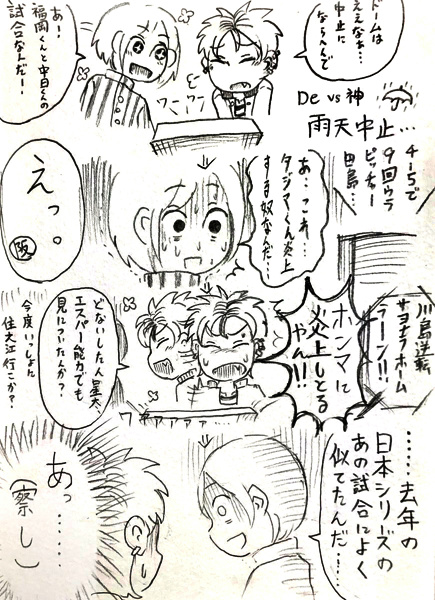 ドームは
ええなぁ…
中止に
ならへんで
あ！
福岡くんと中日くんの
試合なんだー！
ワーン
De vs 神
雨天中止…
4-5で
9回ウラ
ピッチャー
田島…
あ…これ…
タジマくん炎上
する奴なんだ…
えっ。
阪
川島逆転
サヨナラホーム
ラーン!!!
ホンマに
炎上しとる
やん!!!
どないしたん星大
エスパー能力でも
身についたんか？
今度いっしょに
住大江行こか？
ワァァァァ…
……去年の
日本シリーズの
あの試合によく
似てたんだ…！
あっ……
（察し）